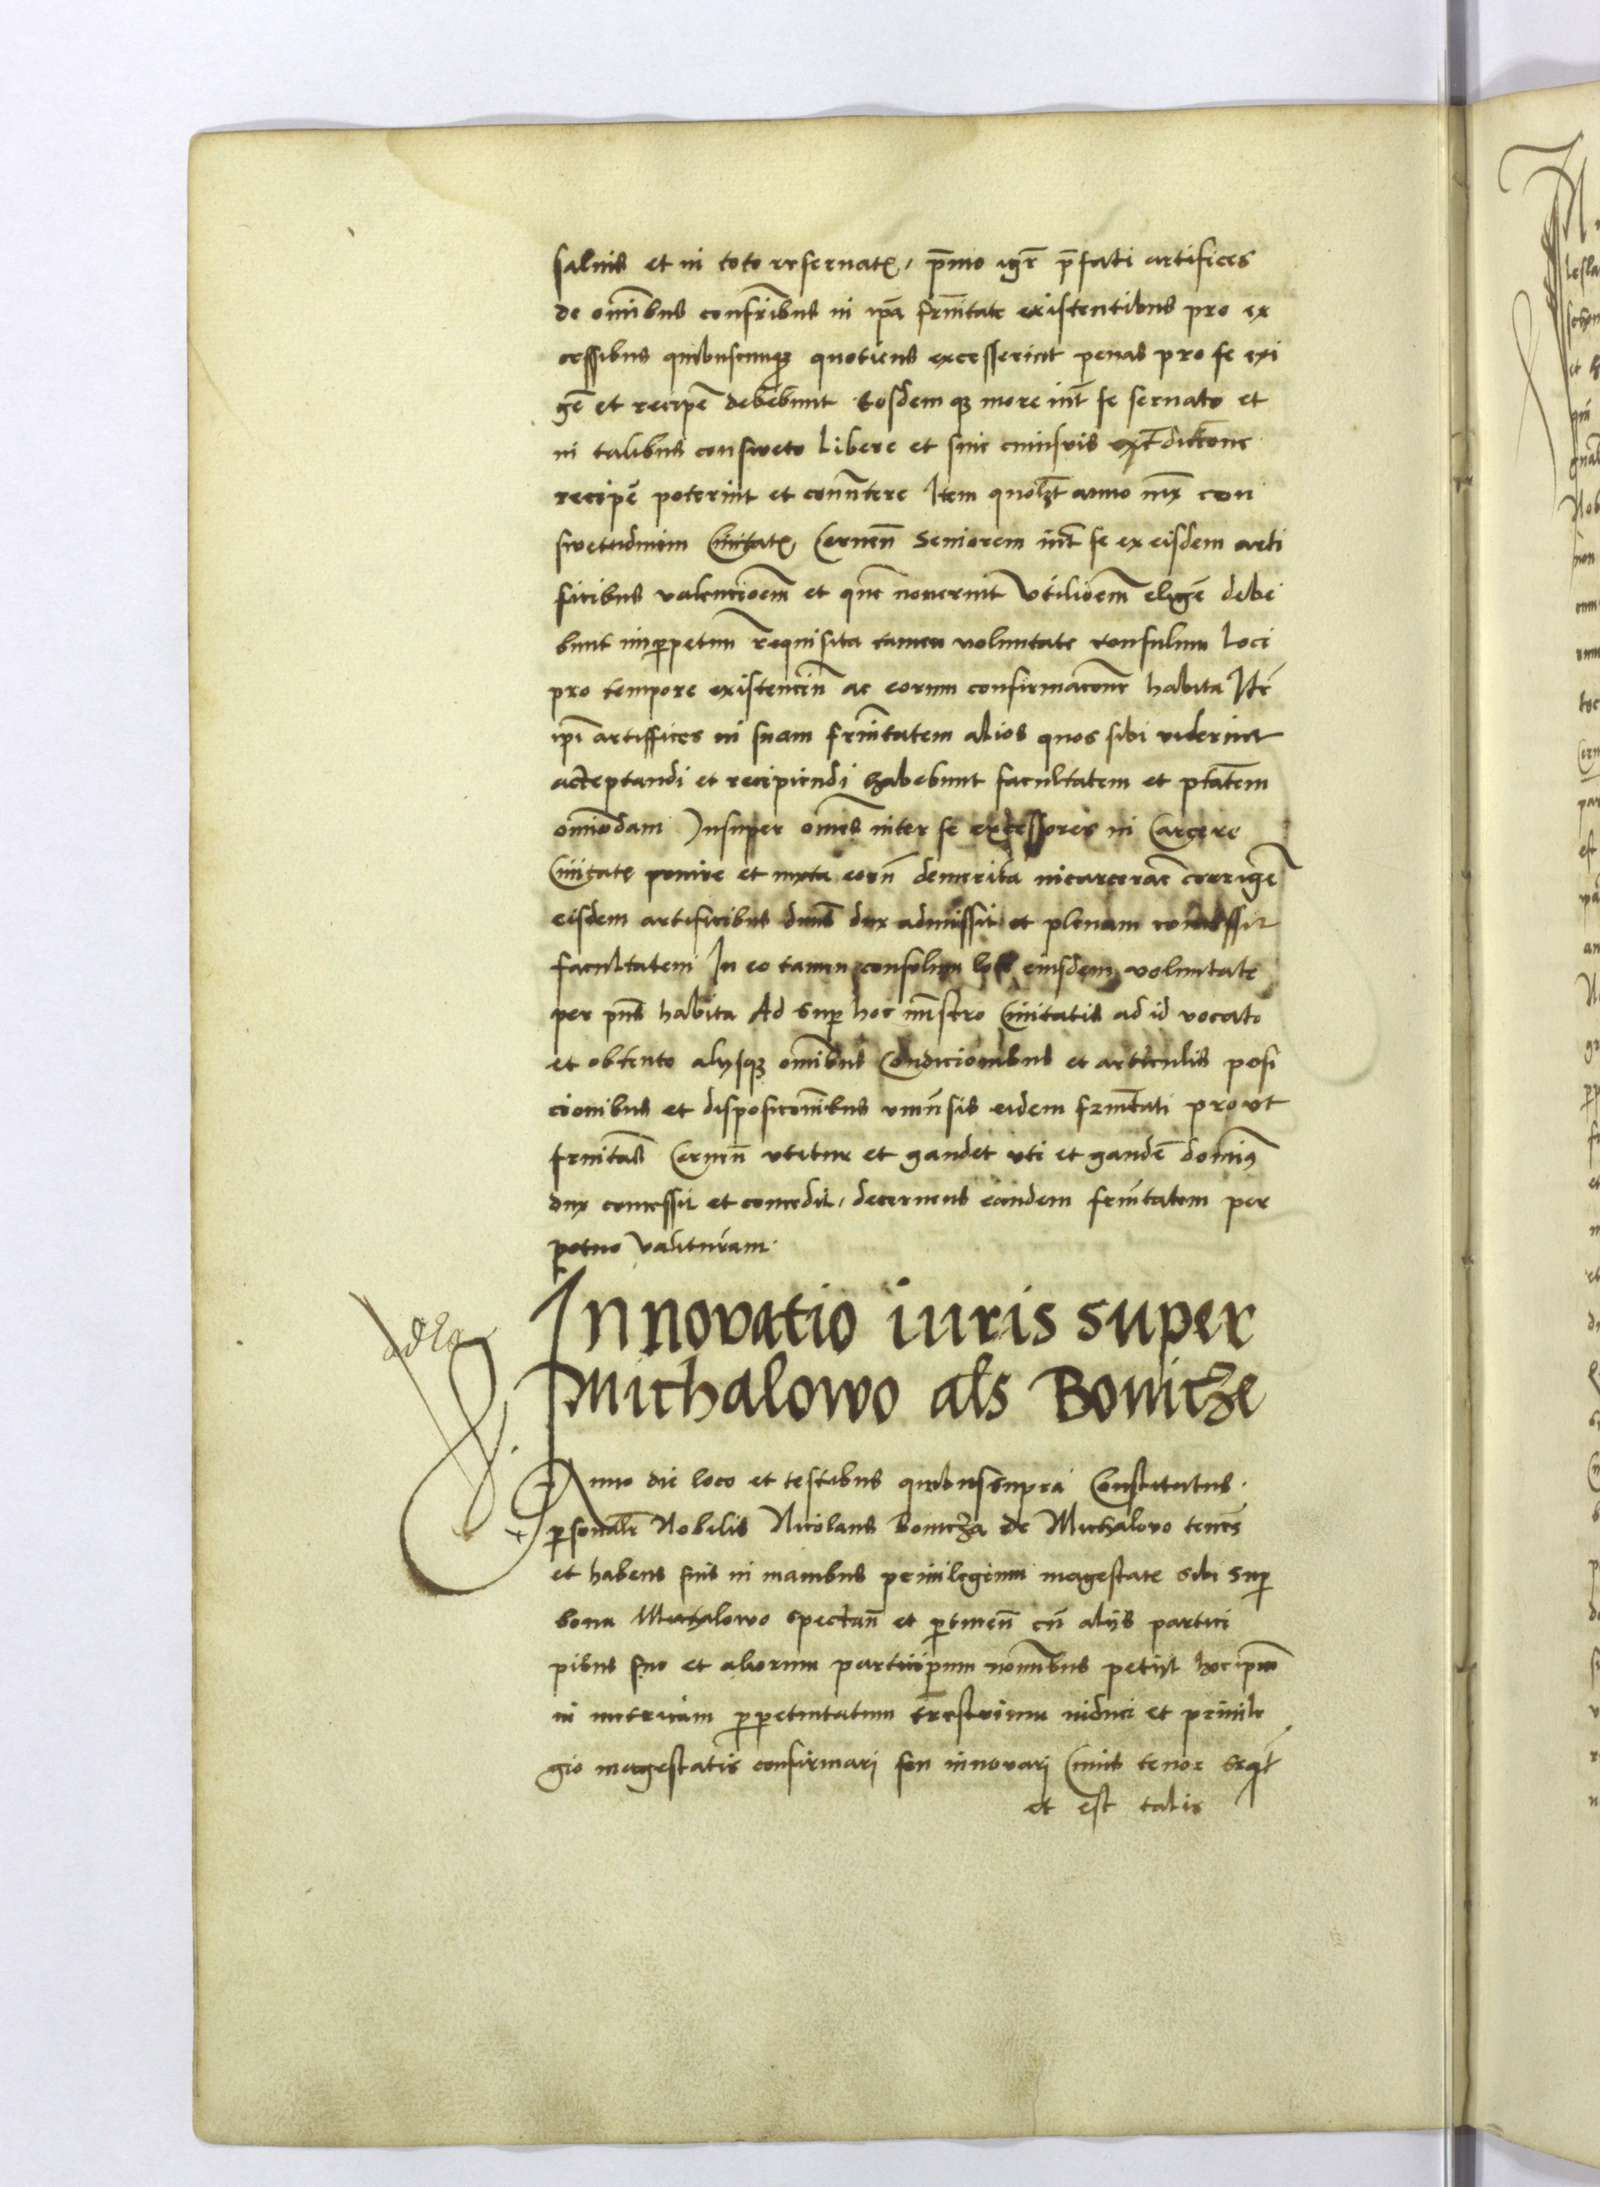 salvis et in toto reservatꝭ, p̄mo igr̄ p̄fati artifices
de om̄ibus confr̄ibus in ip̄a frn̄itate existentibus pro ex
cessibus quibuscumqꝫ quotiens excesserint penas pro se exi
ge͞ et recipe͞ debebunt Eosdemqꝫ more int̄ se servato et
in talibus consweto libere et sine cuiusvis
recipe͞ poterint et con̄ntere Item quolꝫt anno iux̄ con
swetudinem Civitatꝭ Cernen̄ Seniorem int̄ se ex eisdem arti
ficibus valencio͞em et que͞ noverint utilio͞em elige͞ debe
bunt imꝑpetuu͞ requisita tamen voluntate consulum loci
pro tempore existenciu͞ ac eorum confirmac͞one habita Ite͞
ip̄i artiffices in suam frn̄itatem alios quos sibi viderint
acceptandi et recipiendi habebunt facultatem et p̄tate͞m
om̄imodam Insuper om̄es inter se excessores in Carcere
Civitatꝭ punire et iuxta eoru͞ demerita incarcerac͞ corrige͞
eisdem artificibus dn̄us dux admissit et plenam concessit
facultatem In eo tamen consulum loci eiusdem voluntate
per pn̄s habita Ad super hoc mīstro Civitatis ad id vocato
et obtento alijsqꝫ om̄ibus Condicionibus et articulis posi
cionibus et disposic͞onibus univ̄sis eidem frn̄itati prout
frnitas̄ Cernen̄ utitur et gaudet uti et gaude͞ dominꝰ
dux concessit et concedit, decernens eandem frn̄itatem per
petuo valituram
ad
Innovatio iuris super
Michalowo als Bonicze
Anno die loco et testibus quibus supra Constitutus
ꝑsonalr̄ Nobilis Nicolaus Bonicza de Michalowo tenēs
et habens suis in manibus privilegium magestate sibi Suꝑ
bona Michalowo spectan̄ et ꝑtinen̄ cu͞ alijs partici
pibus suo et aliorum participum nominibus petijt hoc ip̄m
in metricam ꝑpetuitatum trēstrium induci et privile
gio magestatis confirmari seu innovari Cuius tenor seqt̄
et est talis